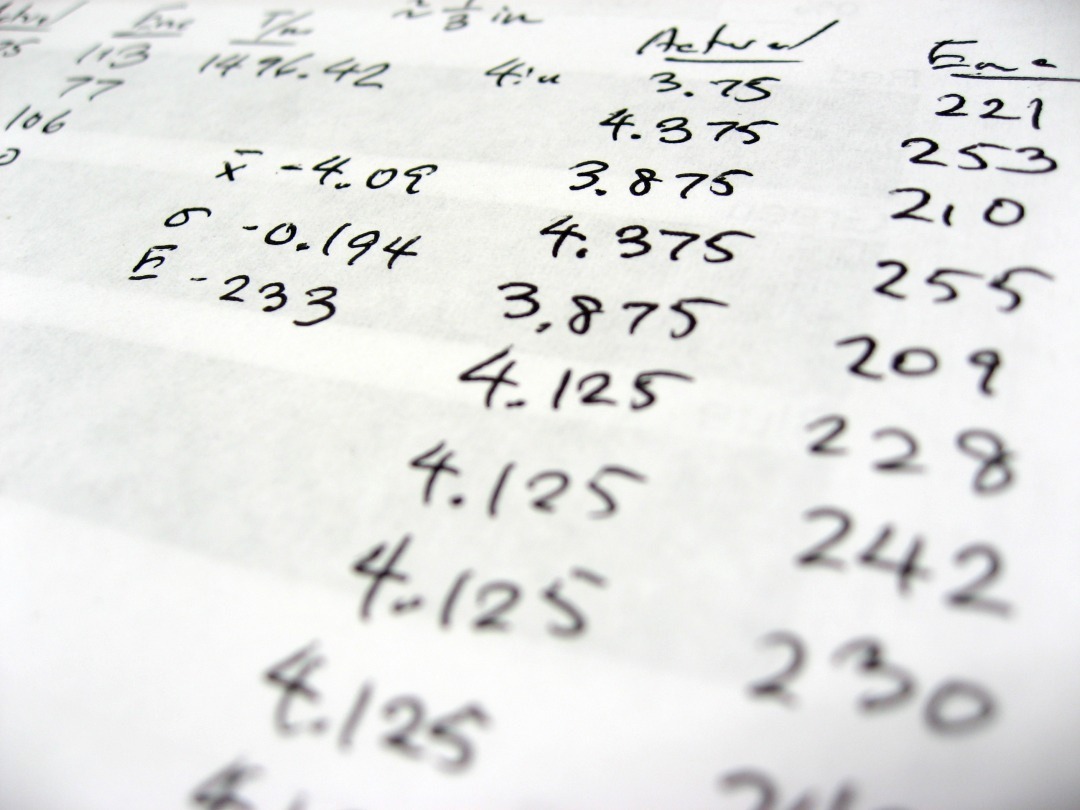 Enc T/m ~ 1/3 in Actual Enc
113 1496.42 4in 3.75 221
77 4.375 253
106 x̄ - 4.09 3.875 210
σ - 0.194 4.375 255
E - 233 3.875 209
4.125 228
4.125 242
4.125 230
4.125